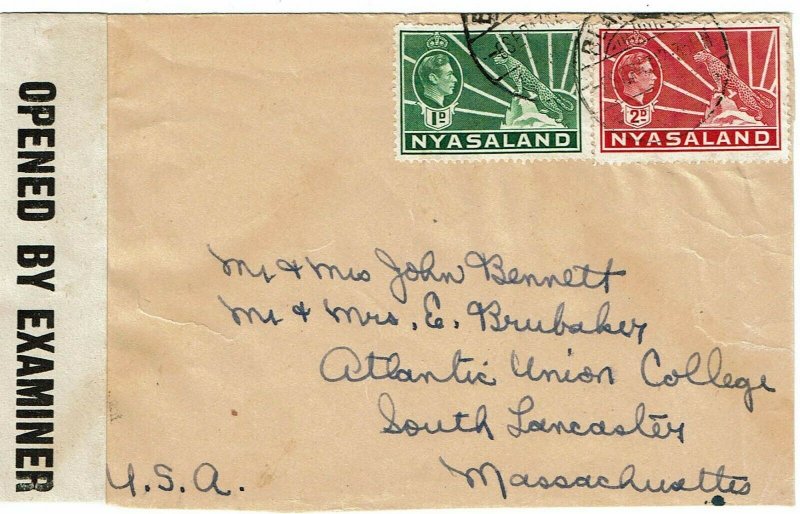 OPENED BY EXAMINER
1D
NYASALAND
2D
NYASALAND
Mr & Mrs John Bennett
Mr & Mrs. E. Brubaker
Atlantic Union College
South Lancaster
Massachusetts
U.S.A.